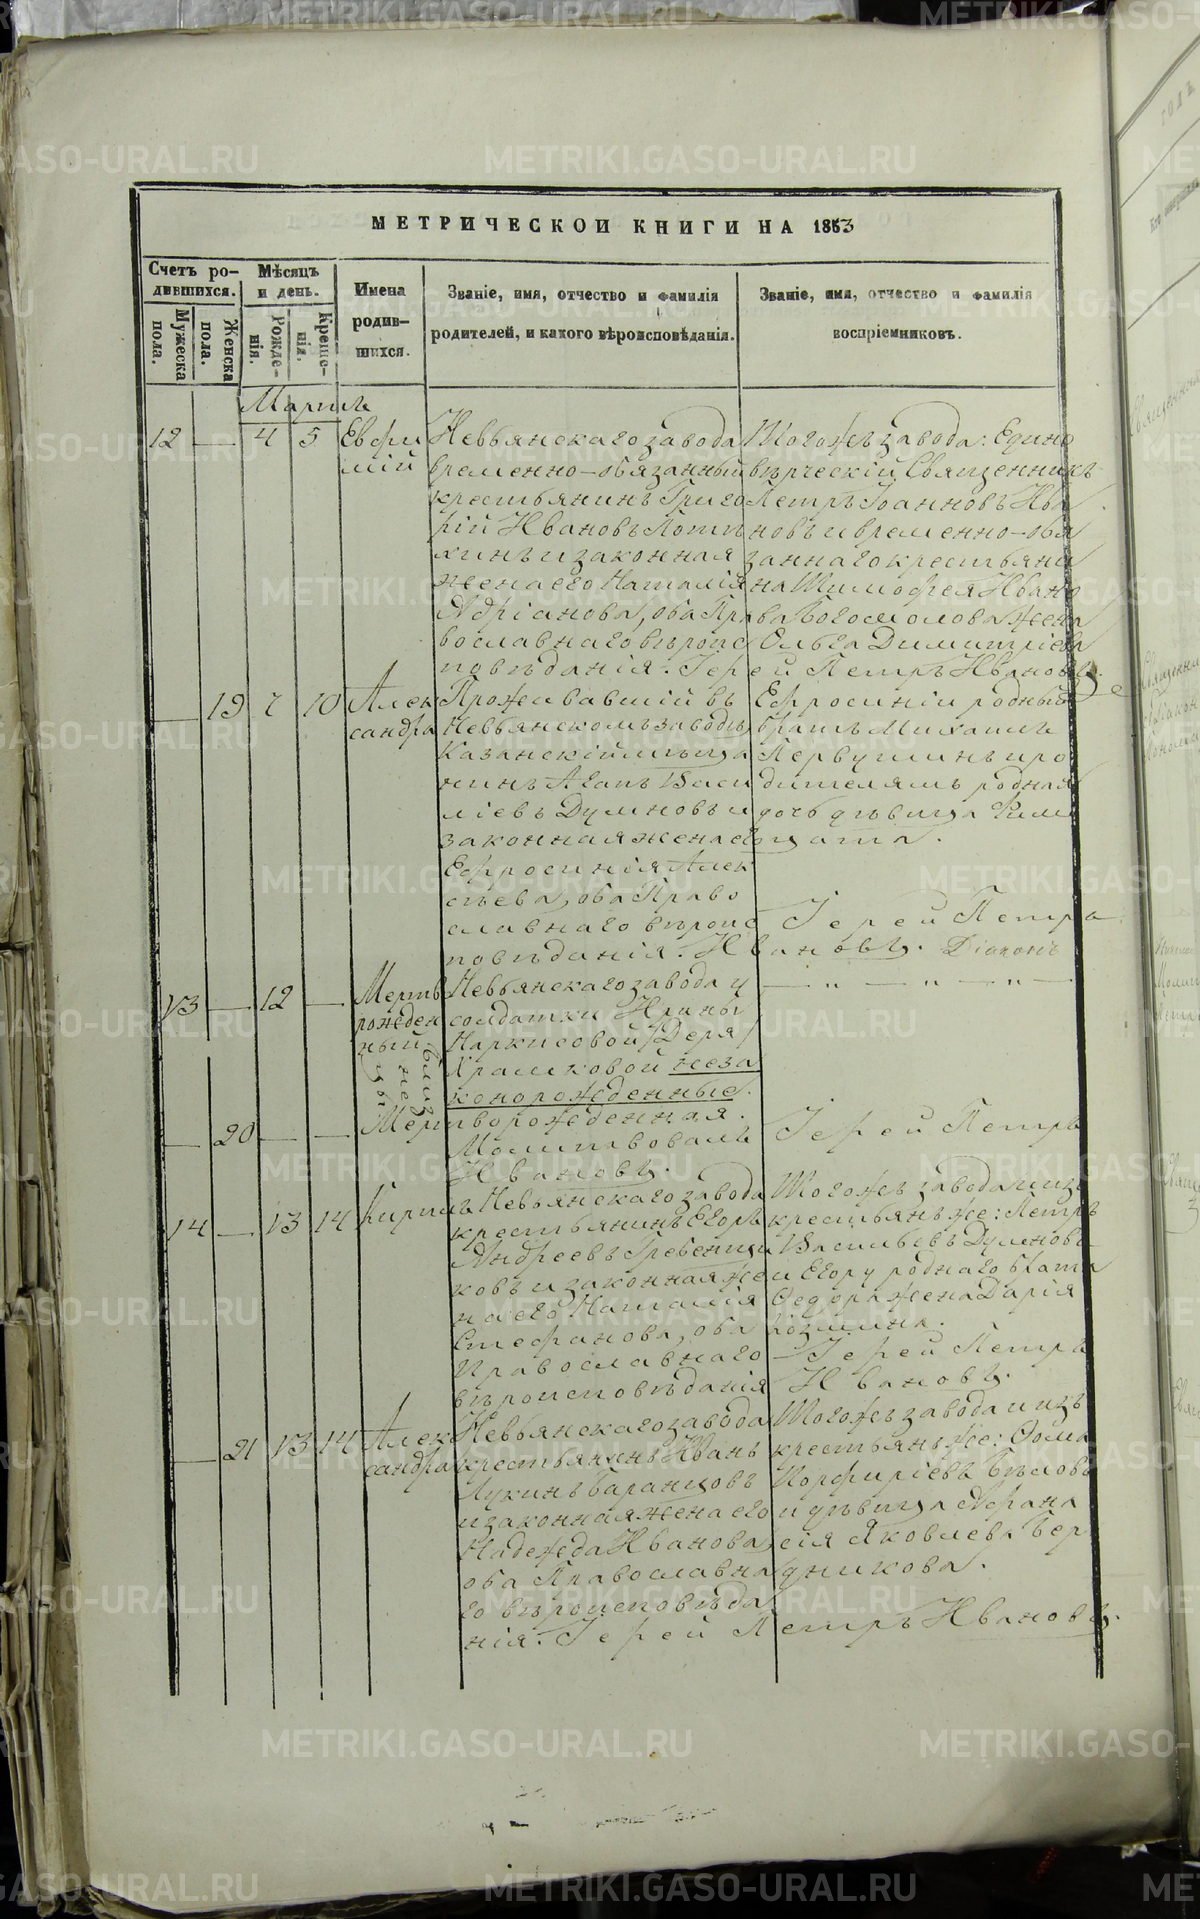 МЕТРИЧЕСКОЙ КНИГИ НА 1863
Счетъ родившихся.
Мѣсяцъ и день.
Имена родившихся.
Званіе, имя, отчество и фамилія родителей, и какого вѣроисповѣданія.
Званіе, имя, отчество и фамилія воспріемниковъ.
Мужеска пола.
Женска пола.
Рожденія.
Крещенія.
Мартъ
12 — 4 5
Евфи
мій
Невьянскаго завода
временно-обязанный
крестьянинъ Григо
рій Ивановъ
и законная
жена его Наталія
Адріанова, оба Пра
вославнаго вѣроис
повѣданія. Іерей Петръ Ивановъ.
Тогожъ завода: Едино
вѣрческій Священникъ
Петръ Іоанновъ Ива
новъ и временно-обя
заннаго крестьяни
на Тимофея Ивано
ва Богомолова жена
Ольга Димитріева
— 19 7 10
Алек
сандра
Проживавшій въ
Невьянскомъ заводѣ
Казанскій мѣща
нинъ Агапъ Васи
ліевъ Думновъ и
законная жена его
Ефросинія Алек
сѣева, оба Право
славнаго вѣроис
повѣданія.
Ефросиніи родный
братъ Михаилъ
Первушинъ и ро
дителямъ родная
дочь дѣвица
Іерей Петръ
Ивановъ. Діаконъ
13 — 12 —
Мертв
рожден
ный
близ
не
цы
Невьянскаго завода у
солдатки Ирины
Наркисовой /Деря/
Храмковой неза
конорожденные.
— " — " — " —
— 20 — —
Мертворожденная.
Молитвовалъ Іерей Петръ
Ивановъ.
14 — 13 14
Кирилъ
Невьянскаго завода
крестьянинъ Егоръ
Андреевъ Гребенщи
ковъ и законная же
на его Наталія
Стефанова, оба
Православнаго
вѣроисповѣданія
Тогожъ завода и изъ
крестьянъ же: Петръ
Васильевъ Думновъ
и Егору роднаго брата
Федора жена Дарія
Козмина.
Іерей Петръ
Ивановъ.
— 21 13 14
Алек
сандра
Невьянскаго завода
крестьянинъ Иванъ
Лукинъ Баранцовъ
и законная жена его
Надежда Иванова
оба Православна
го вѣроисповѣда
нія. Іерей Петръ Ивановъ.
Тогожъ завода и изъ
крестьянъ же: Фома
Порфиріевъ Бѣловъ
и дѣвица Афана
сія Яковлева Бер
дникова.
METRIKI.GASO-URAL.RU